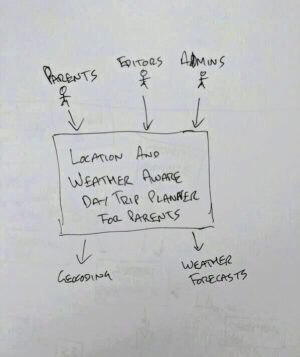 PARENTS
EDITORS
ADMINS
LOCATION AND
WEATHER AWARE
DAY TRIP PLANNER
FOR PARENTS
GEOCODING
WEATHER
FORECASTS